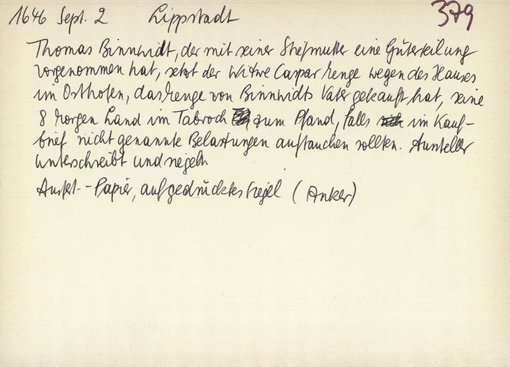 1646 Sept. 2 Lippstadt 379
Thomas Binnwidt, der mit seiner Stiefmutter eine Güterteilung
vorgenommen hat, setzt der Witwe Caspar Menge wegen des Hauses
im Osthofen, das Menge von Binnwidts Vater gekauft hat, seine
8 Morgen Land im Tabroch zum Pfand, falls im Kauf-
brief nicht genannte Belastungen auftauchen sollten. Aussteller
unterschreibt und siegelt
Ausf. - Papier, aufgedrücktes Siegel (Anker)